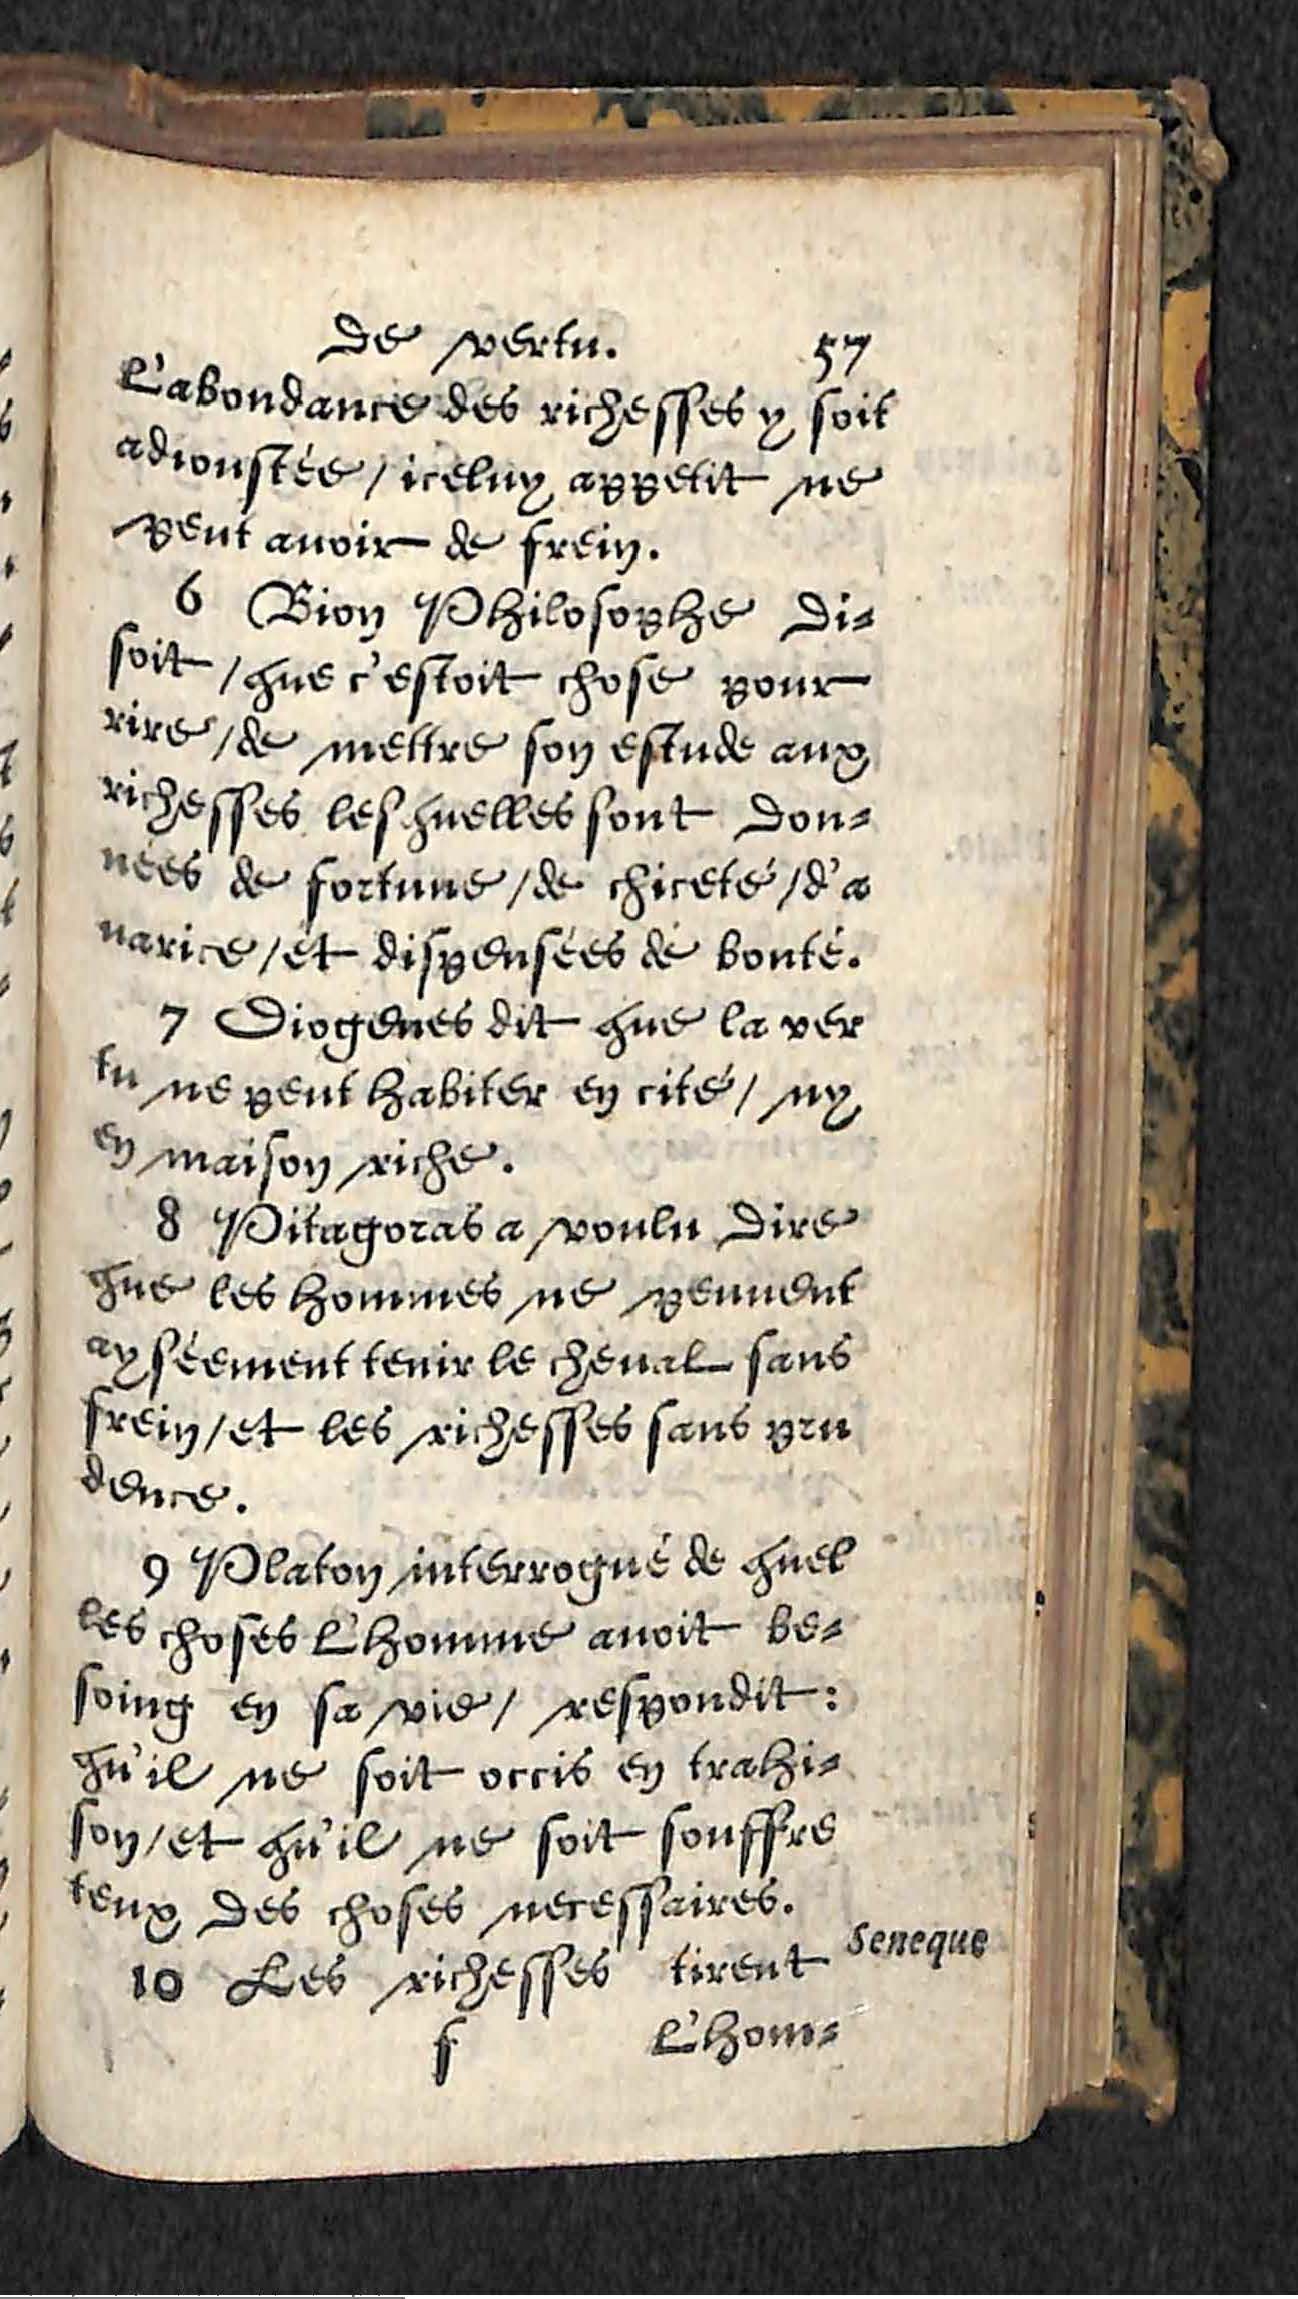 De vertu. 57
L'abondance des richesses y soit
adioustée / iceluy appetit ne
peut auoir de frein.
6 Bion Philosophe di-
soit / que c'estoit chose pour
rire / de mettre son estude aux
richesses lesquelles sont don-
nées de fortune / de chiceté / d'a
uarice / et dispensées de bonté.
7 Diogenes dit que la ver
tu ne peut habiter en cité / ny
en maison riche.
8 Pitagoras a voulu dire
que les hommes ne peuuent
ayséement tenir le cheual sans
frein / et les richesses sans pru
dence.
9 Platon interrogué de quel
les choses l'homme auoit be-
soing en sa vie / respondit:
qu'il ne soit occis en trahi-
son / et qu'il ne soit souffre
teux des choses necessaires.
10 Les richesses tirent Seneque
f L'hom-